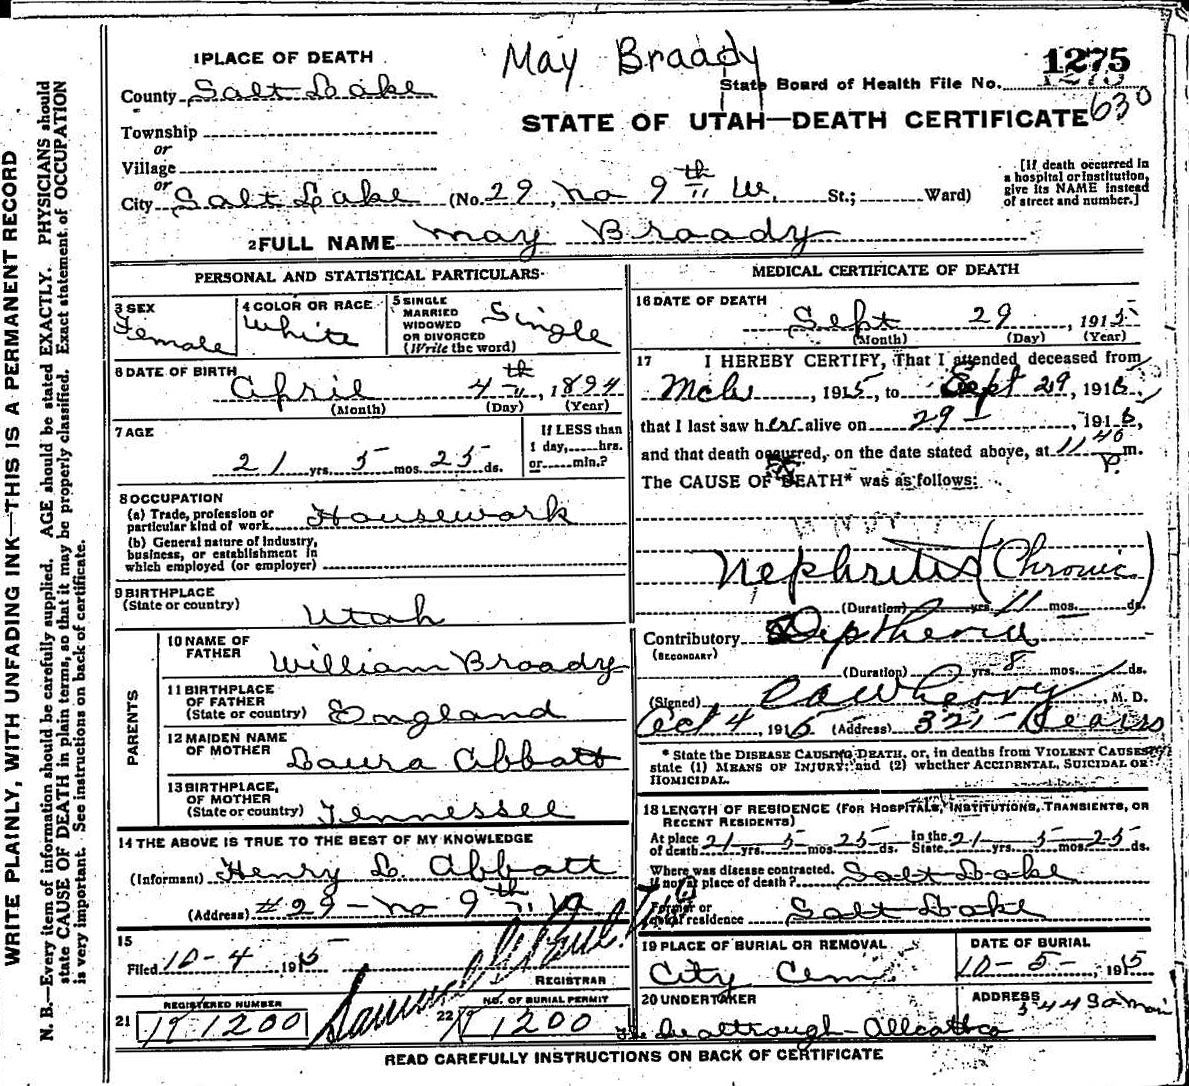 May Braady
1275
1 PLACE OF DEATH
State Board of Health File No. 1275
County Salt Lake
STATE OF UTAH—DEATH CERTIFICATE 630
Township
or
Village
or
City Salt Lake (No. 29, No 9th W. St.; Ward)
[If death occurred in
a hospital or institution,
give its NAME instead
of street and number.]
2 FULL NAME May Braady
PERSONAL AND STATISTICAL PARTICULARS
3 SEX
Female
4 COLOR OR RACE
White
5 SINGLE
MARRIED
WIDOWED
OR DIVORCED
(Write the word)
Single
6 DATE OF BIRTH
April 4th, 1894
(Month) (Day) (Year)
7 AGE
21 yrs. 5 mos. 25 ds.
If LESS than
1 day, hrs.
or min.?
8 OCCUPATION
(a) Trade, profession or
particular kind of work Housework
(b) General nature of industry,
business, or establishment in
which employed (or employer)
9 BIRTHPLACE
(State or country)
Utah
PARENTS
10 NAME OF
FATHER
William Braady
11 BIRTHPLACE
OF FATHER
(State or country) England
12 MAIDEN NAME
OF MOTHER
Laura Abbott
13 BIRTHPLACE,
OF MOTHER
(State or country) Tennessee
14 THE ABOVE IS TRUE TO THE BEST OF MY KNOWLEDGE
(Informant) Henry L. Abbott
(Address) #29 - No 9th W
15
Filed 10-4 1915
REGISTRAR
21 REGISTERED NUMBER
1200
22 NO. OF BURIAL PERMIT
1200
MEDICAL CERTIFICATE OF DEATH
16 DATE OF DEATH
Sept 29, 1915
(Month) (Day) (Year)
17 I HEREBY CERTIFY, That I attended deceased from
1915, to Sept 29, 1915
that I last saw her alive on 29, 1915
and that death occurred, on the date stated above, at 11 40 P. m.
The CAUSE OF DEATH* was as follows:
Nephritis (Chronic)
(Duration) yrs. 11 mos. ds.
Contributory Diptheria
(SECONDARY)
(Duration) yrs. 8 mos. ds.
(Signed) M. D.
Oct 4, 1915 (Address) 321
* State the DISEASE CAUSING DEATH, or, in deaths from VIOLENT CAUSES,
state (1) MEANS OF INJURY; and (2) whether ACCIDENTAL, SUICIDAL OR
HOMICIDAL.
18 LENGTH OF RESIDENCE (FOR HOSPITALS, INSTITUTIONS, TRANSIENTS, OR
RECENT RESIDENTS)
At place
of death 21 yrs. 5 mos. 25 ds.
In the
State 21 yrs. 5 mos. 25 ds.
Where was disease contracted,
if not at place of death? Salt Lake
Former or
usual residence Salt Lake
19 PLACE OF BURIAL OR REMOVAL
City Cem
DATE OF BURIAL
10-5-, 1915
20 UNDERTAKER
ADDRESS
READ CAREFULLY INSTRUCTIONS ON BACK OF CERTIFICATE
WRITE PLAINLY, WITH UNFADING INK—THIS IS A PERMANENT RECORD
N. B.—Every item of information should be carefully supplied. AGE should be stated EXACTLY. PHYSICIANS should
state CAUSE OF DEATH in plain terms, so that it may be properly classified. Exact statement of OCCUPATION
is very important. See instructions on back of certificate.